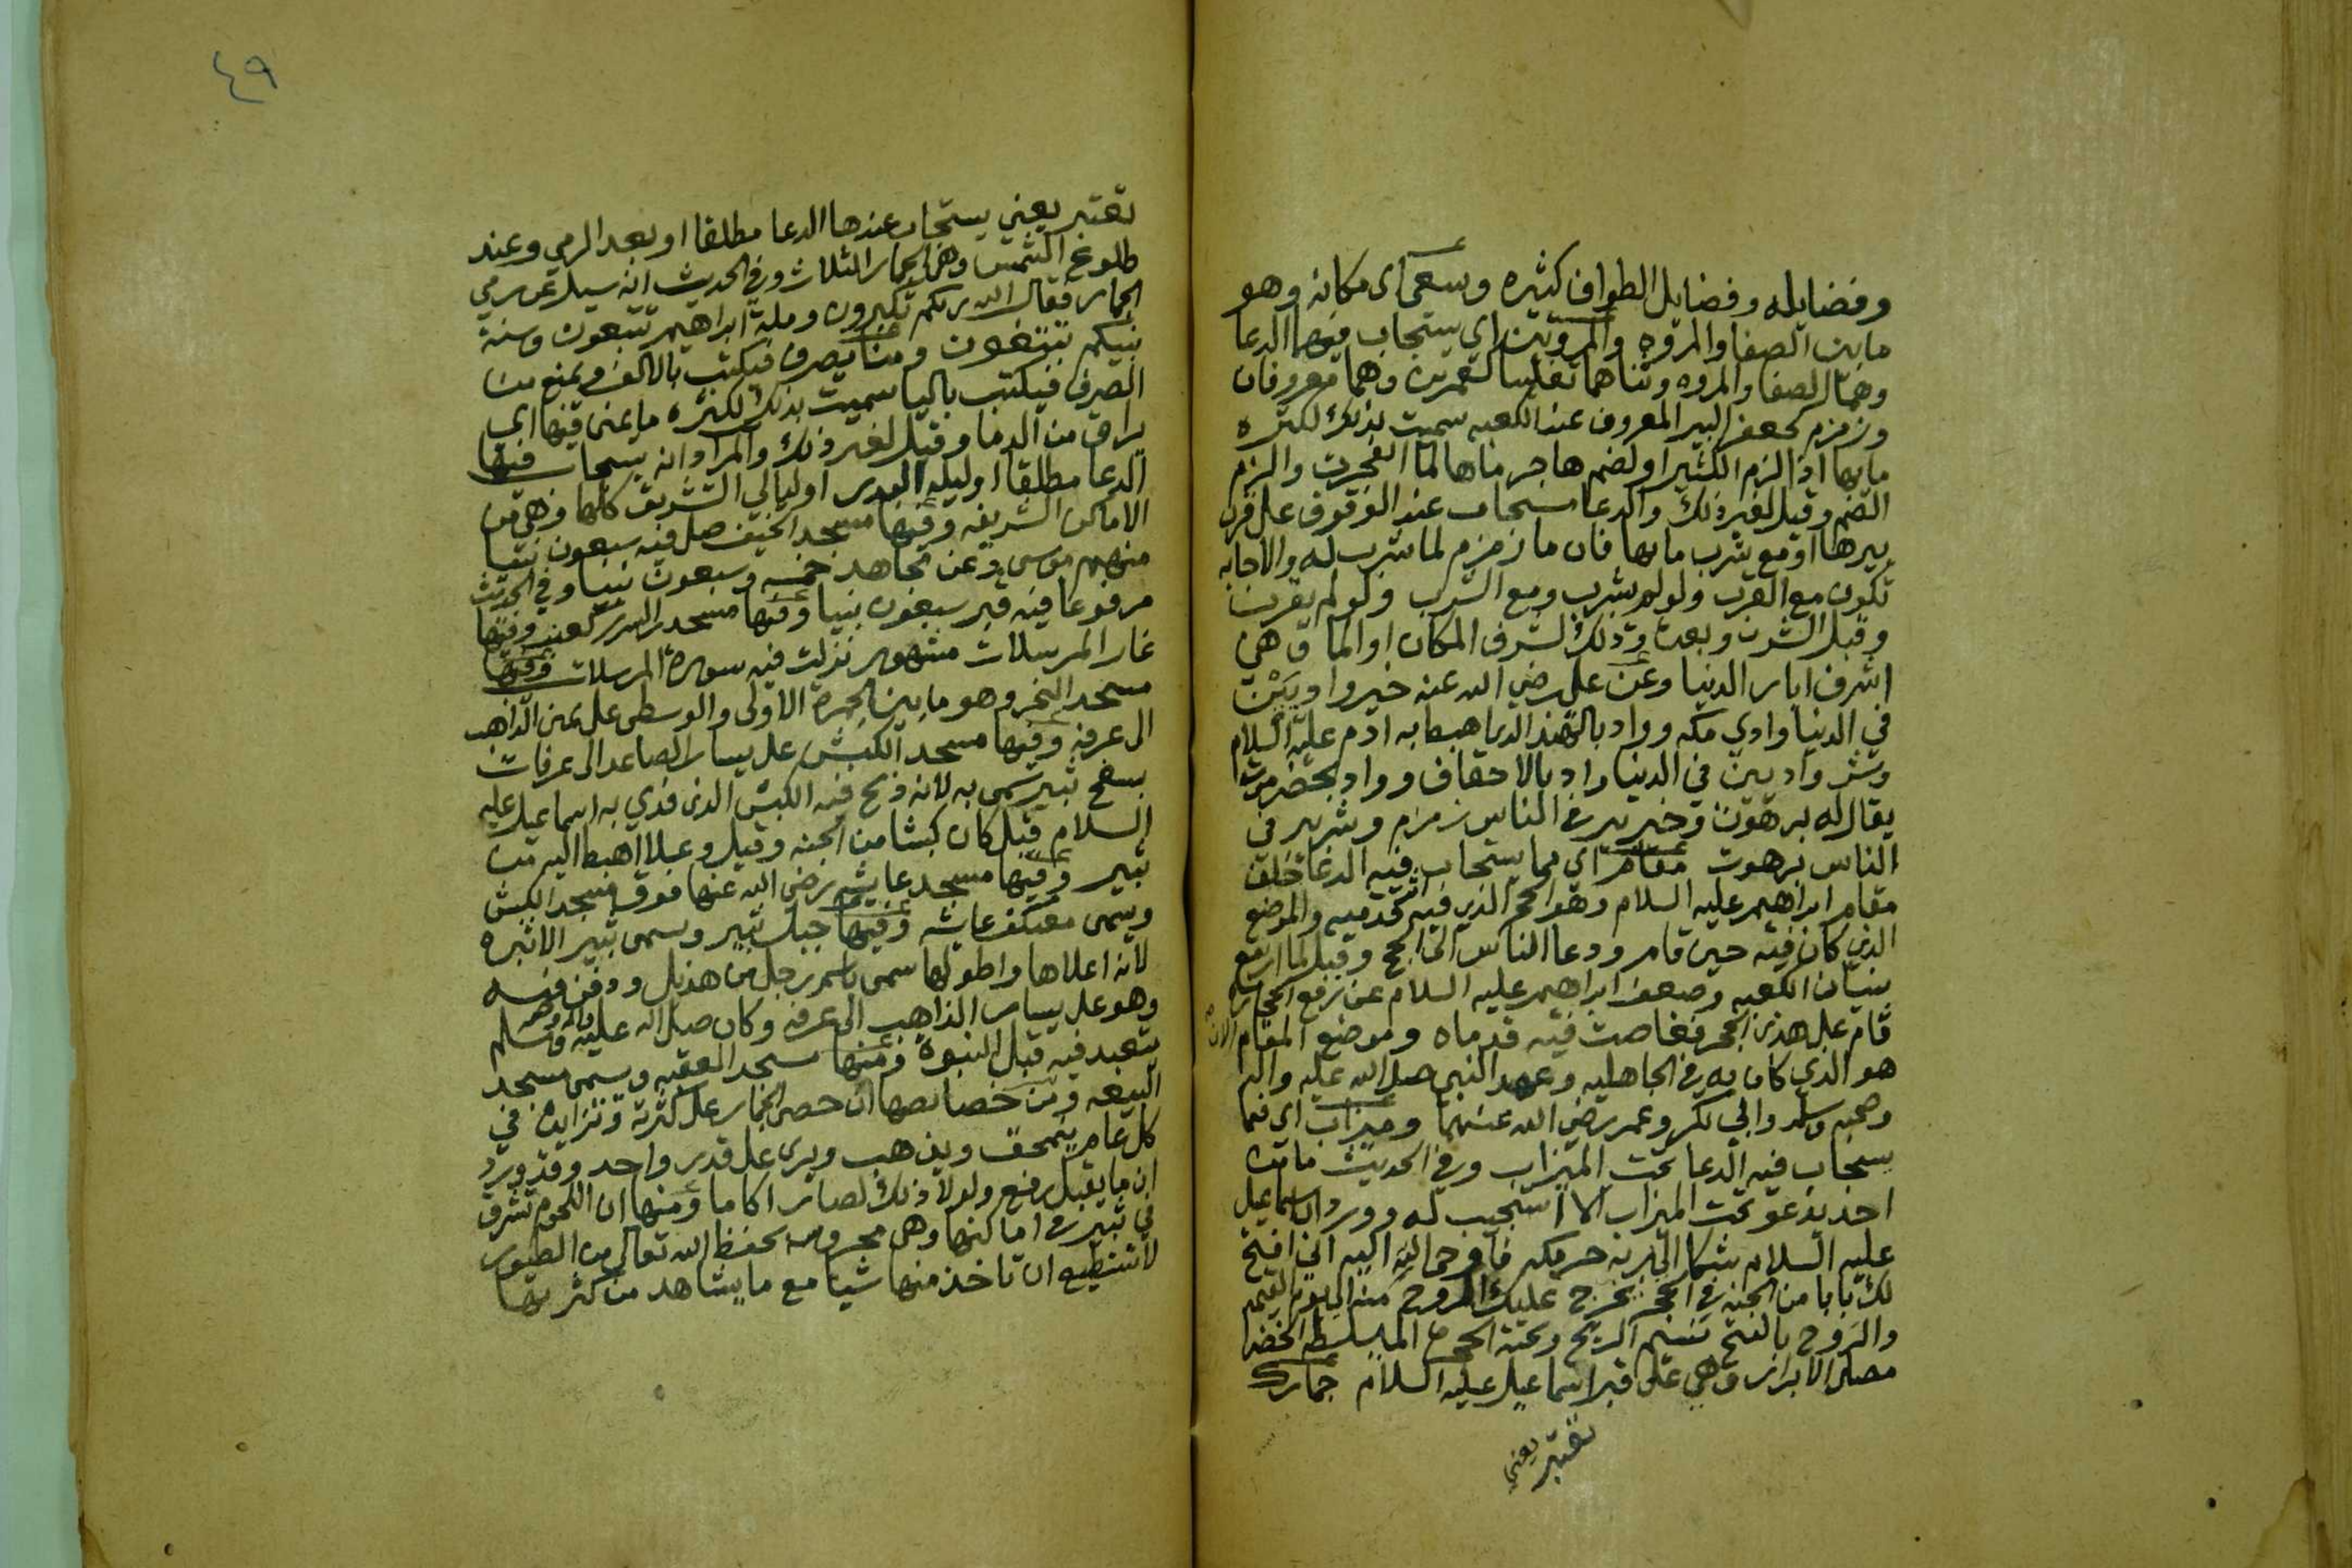 وفضايله وفضايل الطواف كثيره وسعى اى مكانه وهو
مابين الصفا والمروه والمروتين اي يستجاب فيهما الدعا
وهما الصفا والمروه وثناهما تغليبا كالعمرين وهما معروفان
وزمزم كجعفر البير المعروف عند الكعبه سميت بذلك لكثره
مايها اذ الزمزم الكثير او لضم هاجر ماها لما انفجرت والزم
الضم وقيل لغير ذلك والدعا مستجاب عند الوقوف على قرب
بيرها او مع شرب مايها فان ما زمزم لما شرب له والاجابه
تكون مع القرب ولو لم يشرب ومع الشرب ولو لم يقرب
وقبل الشرب وبعده وذلك لشرف المكان او الما وهي
اشرف ابار الدنيا وعن على رضي الله عنه خير واديين
في الدنيا وادي مكه وواد بالهند الذى هبط به ادم عليه السلام
وشر واديين في الدنيا واد بالاحقاف وواد بحضرموت
يقال له برهوت وخير بير في الناس زمزم وشر بير في
الناس برهوت مقام اي مما يستجاب فيه الدعا خلف
مقام ابراهيم عليه السلام وهو الحجر الذي فيه اثر قدميه والموضع
الذى كان فيه حين قام ودعا الناس الى الحج وقيل لما ارتفع
بنيان الكعبه وضعف ابراهيم عليه السلام عن رفع الحجاره
قام على هذى الحجر فغاصت فيه قدماه وموضع المقام الان
هو الذي كان به في الجاهليه وعهد النبي صلى الله عليه واله
وصحبه وسلم وابي بكر وعمر رضي الله عنهما وميزاب اي مما
يستجاب فيه الدعا تحت الميزاب وفي الحديث ما من
احد يدعو تحت الميزاب الا استجيب له وورد ان اسماعيل
عليه السلام شكا الى ربه حر مكه فاوحى الله اليه اني افتح
لك بابا من الجنه في الحجر يخرج عليك الروح منه الى يوم القيمه
والروح بالفتح نسيم الريح وتحته الحجر الخضرا
مصلى الابرار وهي على قبر اسماعيل عليه السلام جمارك
تعتبر يعني
٤٩
تعتبر يعني يستجاب عندها الدعا مطلقا او بعد الرمي وعند
طلوع الشمس وهى الجمار الثلاث وفي الحديث انه سيل عن رمي
الجمار فقال الله ربكم تكبرون وملة ابراهيم تتبعون وسنة
نبيكم تتبعون ومنا يصرف فيكتب بالالف ويمنع من
الصرف فيكتب باليا سميت بذلك لكثره ما يمنى فيها اى
يراق من الدما وقيل لغير ذلك والمراد انه يستجاب فيها
الدعا مطلقا او ليلة البدر او ليالي التشريق كلها وهي من
الاماكن الشريفه وفيها مسجد الخيف صلى فيه سبعون نبيا
منهم موسى وعن مجاهد خمسه وسبعون نبيا وفي الحديث
مرفوعا فيه قبر سبعون نبيا وفيها مسجد السرر كعنب وفيها
غار المرسلات مشهور نزلت فيه سورة المرسلات وفيها
مسجد النحر وهو مابين الجمرة الاولى والوسطى على يمين الذاهب
الى عرفه وفيها مسجد الكبش على يسار الصاعد الى عرفات
بسفح ثبير سمى به لانه ذبح فيه الكبش الذى فدي به اسماعيل عليه
السلام قيل كان كبشا من الجنه وقيل وعلا اهبط اليه من
ثبير وفيها مسجد عايشه رضي الله عنها فوق مسجد الكبش
ويسمى معتكف عايشه وفيها جبل ثبير ويسمى ثبير الاثبره
لانه اعلاها واطولها سمى باسم رجل من هذيل ودفن فيه
وهو على يسار الذاهب الى عرفه وكان صلى الله عليه واله وصحبه وسلم
يتعبد فيه قبل النبوة ومنها مسجد العقبه ويسمى مسجد
البيعه ومن خصايصها ان حصى الجمار على كثرته وتزايده في
كل عام يتمحق ويذهب ويرى على قدر واحد وقد ورد
ان ما يقبل رفع ولولا ذلك لصار اكاما ومنها ان اللحوم تشرق
في ثبير في اماكنها وهى محروسه بحفظ الله تعالى من الطيور
لا تستطيع ان تاخذ منها شيا مع ما يشاهد من كثرتها